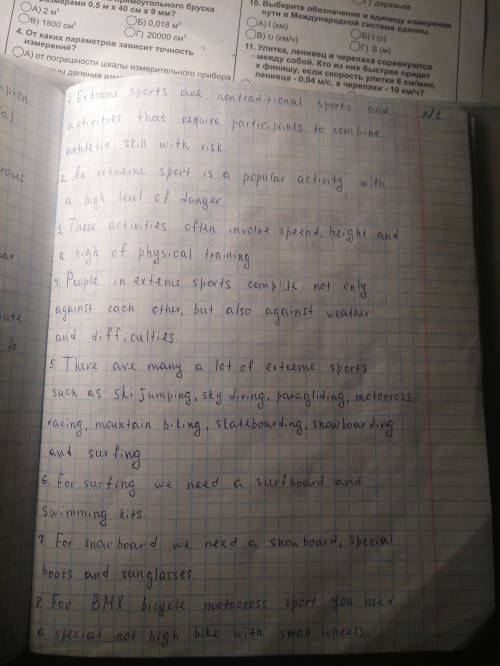 прямоугольного бруска
размерами 0,5 м х 40 см х 9 мм?
А) 2 м³
Б) 0,018 м³
В) 1800 см³
Г) 20000 см³
4. От каких параметров зависит точность
измерений?
А) от погрешности шкалы измерительного прибора
цены деления
деревьев
10. Выберите обозначение и единицу измерения
пути в Международной системе единиц.
А) l (км)
Б) t (с)
В) υ (км/ч)
Г) S (м)
11. Улитка, ленивец и черепаха соревнуются
между собой. Кто из них быстрее придет
к финишу, если скорость улитки 6 см/мин,
ленивца - 0,04 м/с, а черепахи - 10 км/ч?
to
N1
1. Extreme sports are nontraditional sports and
activities that require participants to combine
athletic skill with risk.
2. An extreme sport is a popular activity with
a high level of danger
3. These activities often involve speend, height and
a high of physical training
4. People in exteme sports complite not only
against each other, but also against weather
and difficulties.
5. There are many a lot of extreme sports
such as: ski jumping, sky diving, paragliding, motocross
racing, mountain biking, skateboarding, snowboarding
and surfing.
6. For surfing we need a surfboard and
swimming kits.
7. For snowboard we need a snowboard, special
boots and sunglasses.
8. For BMX bicycle motocross sport you need
a special not high bike with small wheels.